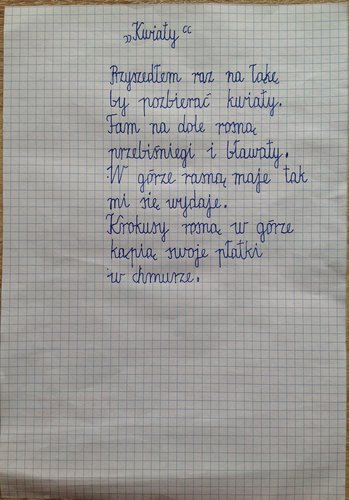 „Kwiaty“
Przyszedłem raz na łąkę
by pozbierać kwiaty.
Tam na dole rosną
przebiśniegi i bławaty.
W górze rosną maje tak
mi się wydaje.
Krokusy rosną w górze
kąpią swoje płatki
w chmurze.